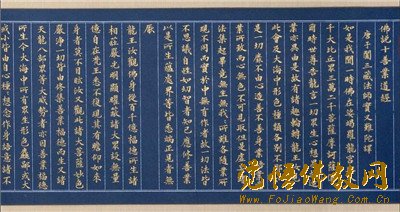 佛說十善業道經
唐于闐三藏法師實叉難陀譯
如是我聞一時佛在娑竭羅龍宮
千大比丘眾三萬二千菩薩摩訶
爾時世尊告龍王言一切眾生心
業亦異由是故有諸趣輪轉龍王
此會及大海中形色種類各別不
是一切靡不由心造善不善身業
業所致而心無色不可見取但是虛
法集起畢竟無主無我我所雖各隨業所
現不同而實於中無有作者故一切法皆
不思議自性如幻智者知已應修善業
以是所生蘊處界等皆悉端正見者無
厭
龍王汝觀佛身從百千億福德所生諸
相莊嚴光明顯曜蔽諸大眾設無量
億自在梵王悉不復現其有瞻仰如來
身者豈不目眩汝又觀此諸大菩薩妙色
嚴淨一切皆由修集善業福德而生又諸
天龍八部眾等大威勢者亦因善業福德
所生今大海中所有眾生形色麤鄙或大
或小皆由自心種種想念作身語意諸不
觉悟佛教网